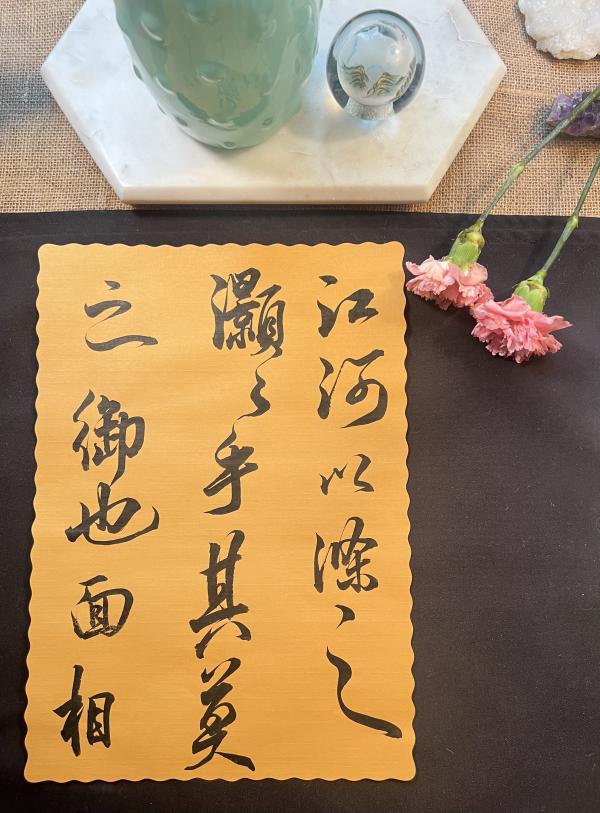 江河以滌之
灝々乎其莫
之御也面相